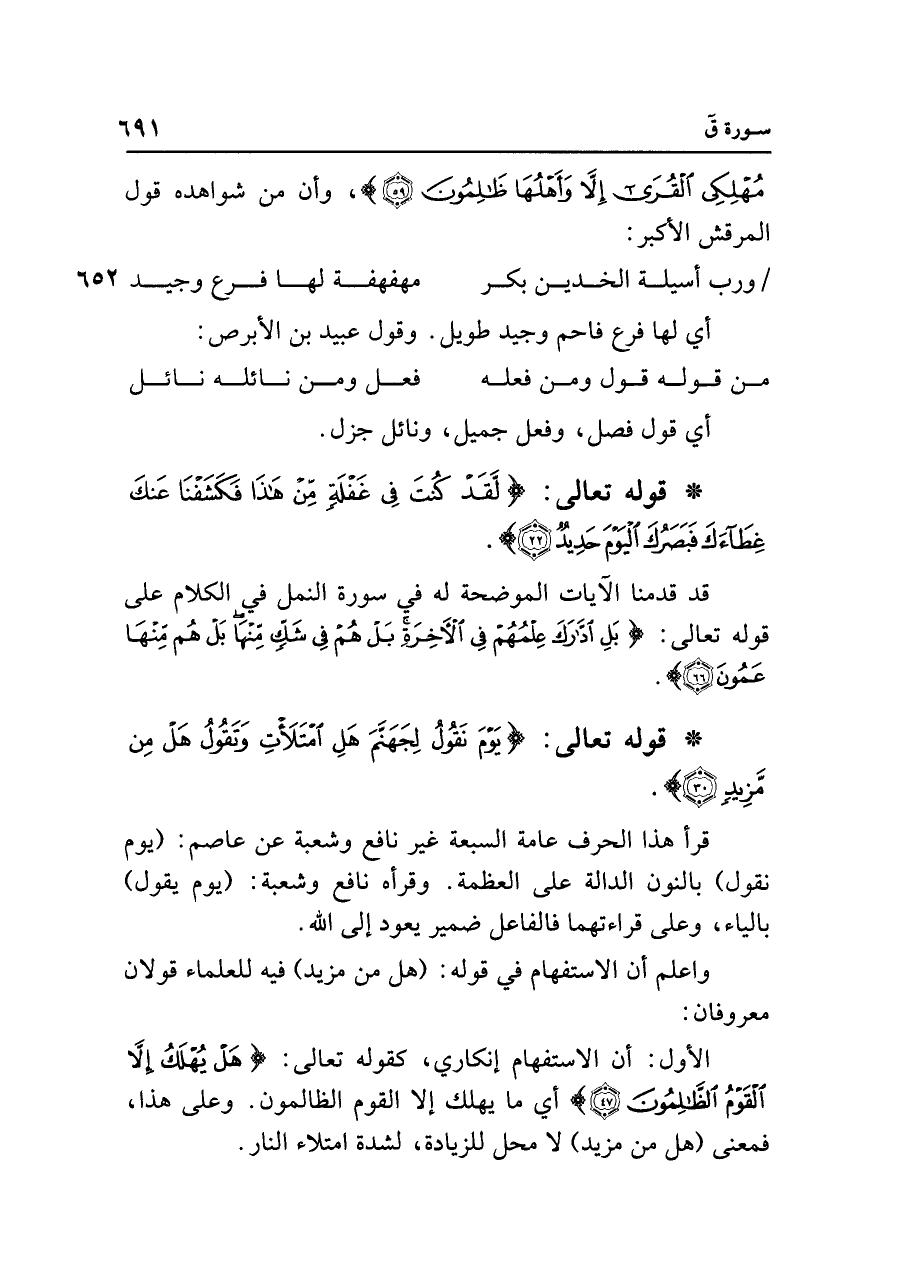 سورة قٓ ٦٩١
مُهْلِكِي ٱلْقُرَىٰٓ إِلَّا وَأَهْلُهَا ظَٰلِمُونَ ٥٩﴾، وأن من شواهده قول
المرقش الأكبر:
/ ورب أسيلة الخدين بكر مهفهفة لها فرع وجيد ٦٥٢
أي لها فرع فاحم وجيد طويل. وقول عبيد بن الأبرص:
من قوله قول ومن فعله فعل ومن نائله نائل
أي قول فصل، وفعل جميل، ونائل جزل.
* قوله تعالى: ﴿لَّقَدْ كُنتَ فِي غَفْلَةٍ مِّنْ هَٰذَا فَكَشَفْنَا عَنكَ
غِطَآءَكَ فَبَصَرُكَ ٱلْيَوْمَ حَدِيدٌ ٢٢﴾.
قد قدمنا الآيات الموضحة له في سورة النمل في الكلام على
قوله تعالى: ﴿بَلِ ٱدَّٰرَكَ عِلْمُهُمْ فِي ٱلْأٓخِرَةِۚ بَلْ هُمْ فِي شَكٍّ مِّنْهَاۖ بَلْ هُم مِّنْهَا
عَمُونَ ٦٦﴾.
* قوله تعالى: ﴿يَوْمَ نَقُولُ لِجَهَنَّمَ هَلِ ٱمْتَلَأْتِ وَتَقُولُ هَلْ مِن
مَّزِيدٍ ٣٠﴾.
قرأ هذا الحرف عامة السبعة غير نافع وشعبة عن عاصم: (يوم
نقول) بالنون الدالة على العظمة. وقرأه نافع وشعبة: (يوم يقول)
بالياء، وعلى قراءتهما فالفاعل ضمير يعود إلى الله.
واعلم أن الاستفهام في قوله: (هل من مزيد) فيه للعلماء قولان
معروفان:
الأول: أن الاستفهام إنكاري، كقوله تعالى: ﴿هَلْ يُهْلَكُ إِلَّا
ٱلْقَوْمُ ٱلظَّٰلِمُونَ ٤٧﴾ أي ما يهلك إلا القوم الظالمون. وعلى هذا،
فمعنى (هل من مزيد) لا محل للزيادة، لشدة امتلاء النار.